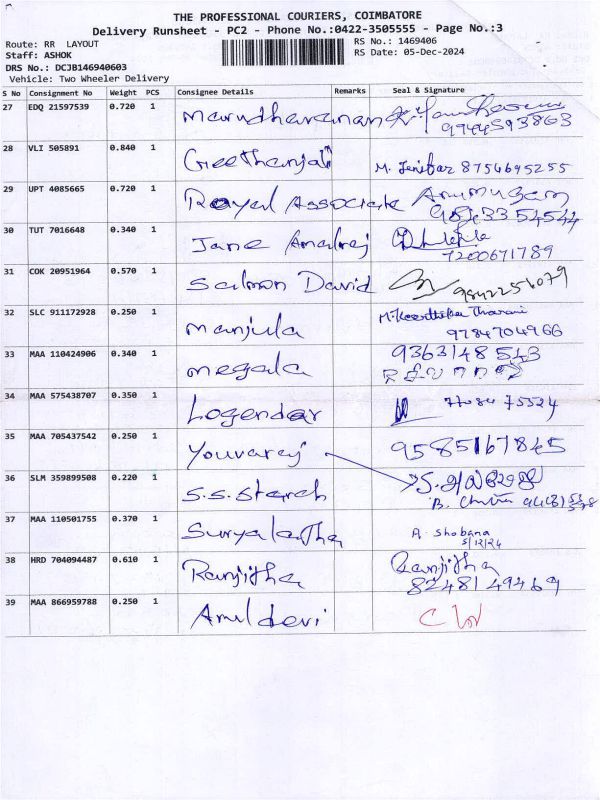 THE PROFESSIONAL COURIERS, COIMBATORE
Delivery Runsheet - PC2 - Phone No.:0422-3505555 - Page No.:3
Route: RR LAYOUT
RS No.: 1469406
Staff: ASHOK
RS Date: 05-Dec-2024
DRS No.: DCJB146940603
Vehicle: Two Wheeler Delivery
S No Consignment No Weight PCS Consignee Details Remarks Seal & Signature
27 EDQ 21597539 0.720 1 Marudharanand
9944593863
28 VLI 505891 0.840 1 Geethanjali M. Jenifar 8754695255
29 UPT 4085665 0.720 1 Royal Associate Arumugam
30 TUT 7016648 0.340 1 Jane Amalraj
7200671789
31 COK 20951964 0.570 1 Salmon David 9842256079
32 SLC 911172928 0.250 1 Manjula M. Keerthika Tharani
9784704966
33 MAA 110424906 0.340 1 megala 9363148543
34 MAA 575438707 0.350 1 Logendar 77084 75524
35 MAA 705437542 0.250 1 Youvaraj 9585167845
36 SLM 359899508 0.220 1 S.S. Starch
37 MAA 110501755 0.370 1 Suryalatha A. Shobana
5/12/24
38 HRD 704094487 0.610 1 Ranjitha Ranjitha
8248149469
39 MAA 866959788 0.250 1 Amul devi